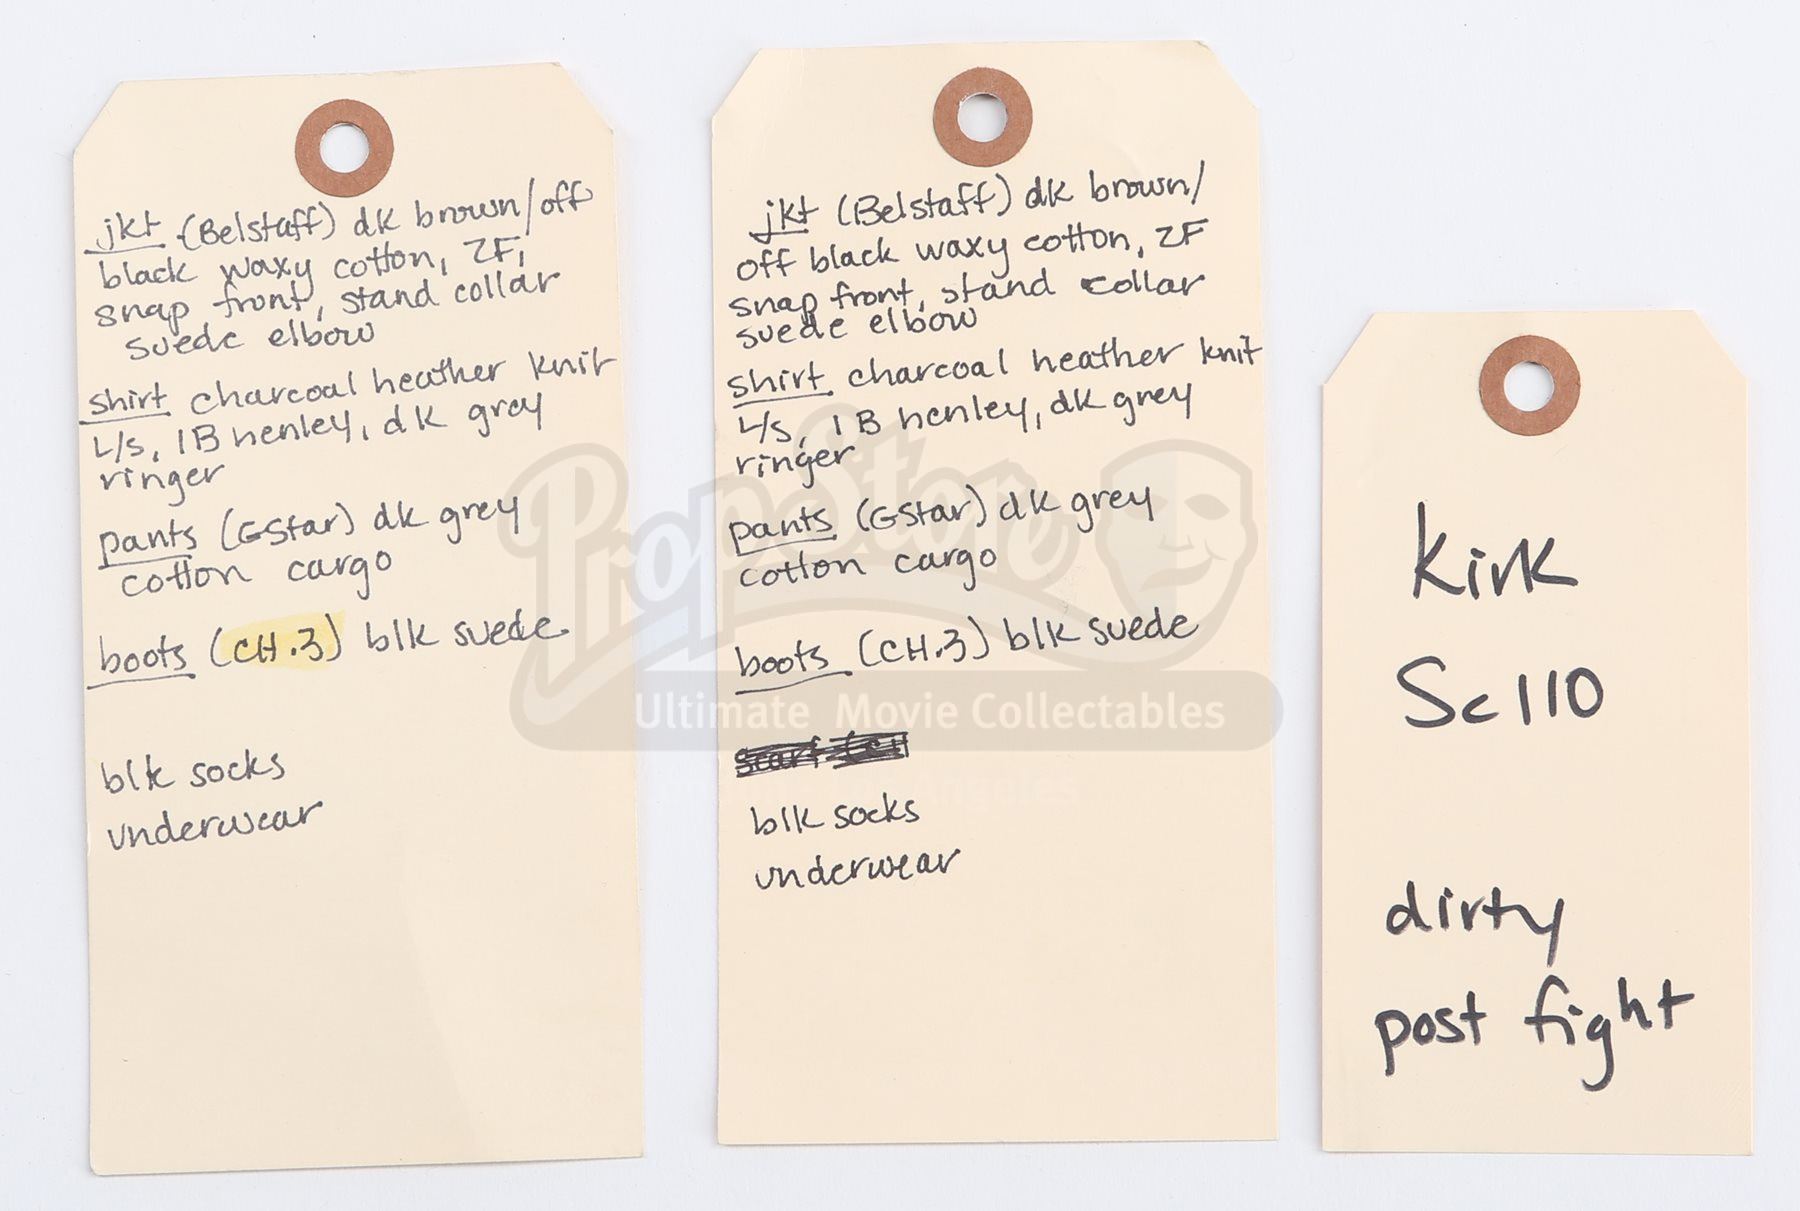 jkt (Belstaff) dk brown/off
black waxy cotton, ZF,
snap front, stand collar
suede elbow
shirt charcoal heather knit
L/s, 1B henley, dk grey
ringer
pants (GStar) dk grey
cotton cargo
boots (CH.3) blk suede
blk socks
underwear
jkt (Belstaff) dk brown/
off black waxy cotton, ZF
snap front, stand collar
suede elbow
shirt charcoal heather knit
L/s, 1B henley, dk grey
ringer
pants (GStar) dk grey
cotton cargo
boots (CH.3) blk suede
scarf
blk socks
underwear
Kirk
Sc 110
dirty
post fight
PropStore
Ultimate Movie Collectables
London · Los Angeles